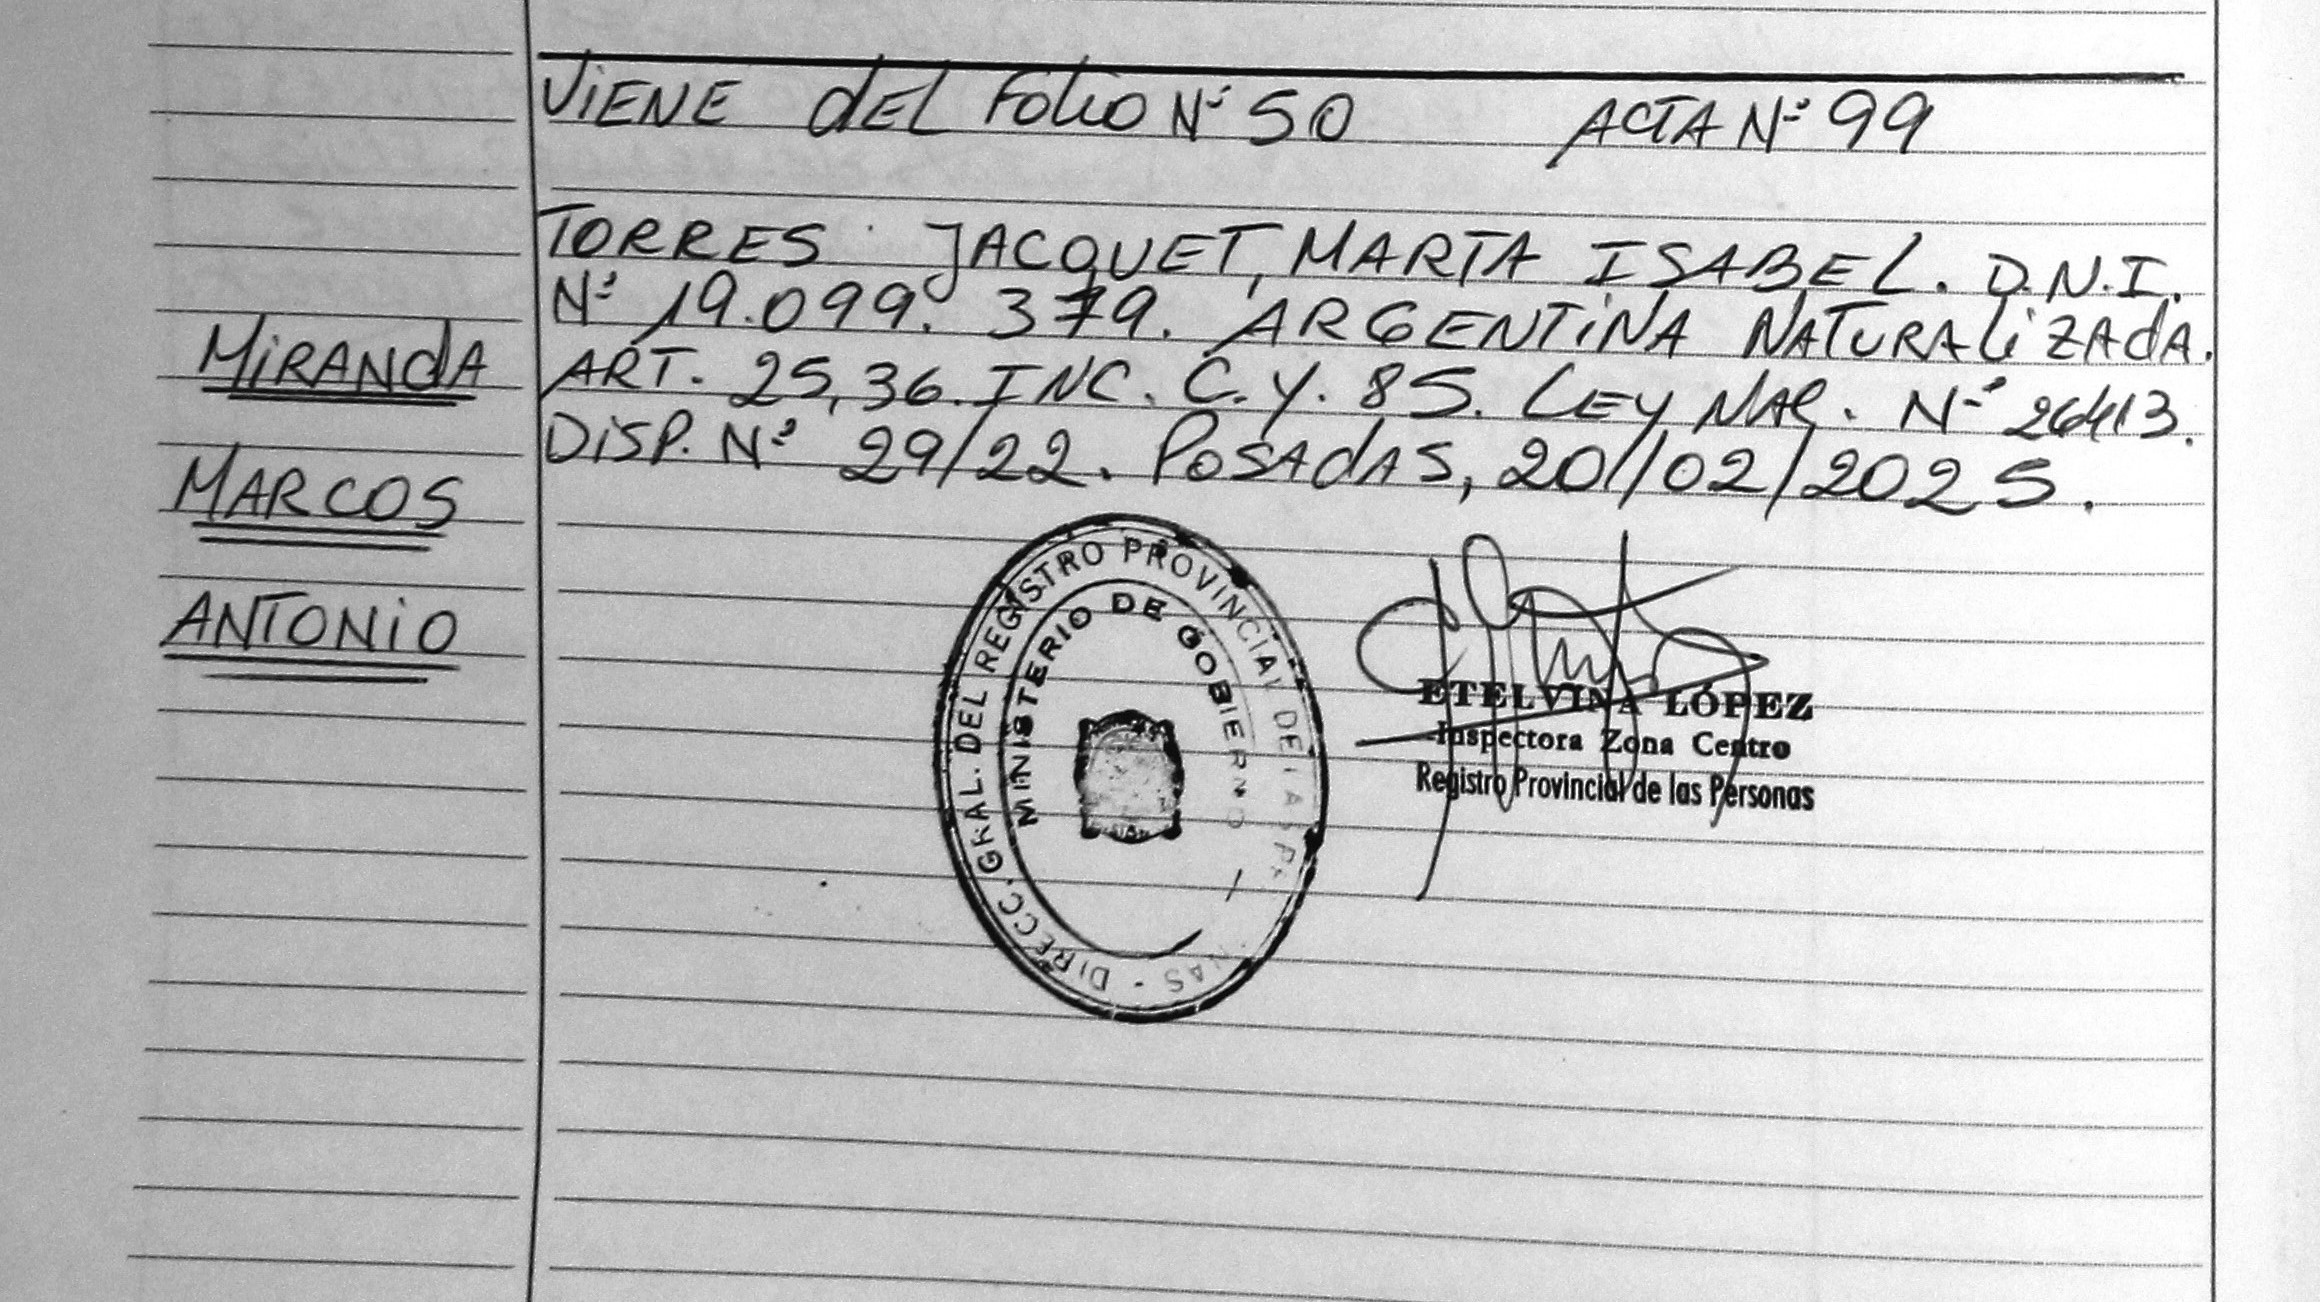 VIENE DEL FOLIO Nº 50 ACTA Nº 99
TORRES JACQUET, MARTA ISABEL. D.N.I.
Nº 19.099.379. ARGENTINA NATURALIZADA.
ART. 25,36. INC. C. Y. 85. LEY NAC. Nº 26413.
DISP. Nº 29/22. POSADAS, 20/02/2025.
MIRANDA
MARCOS
ANTONIO
DIRECC. GRAL. DEL REGISTRO PROVINCIAL DE LAS P NAS -
MINISTERIO DE GOBIERNO
ETELVINA LÓPEZ
Inspectora Zona Centro
Registro Provincial de las Personas